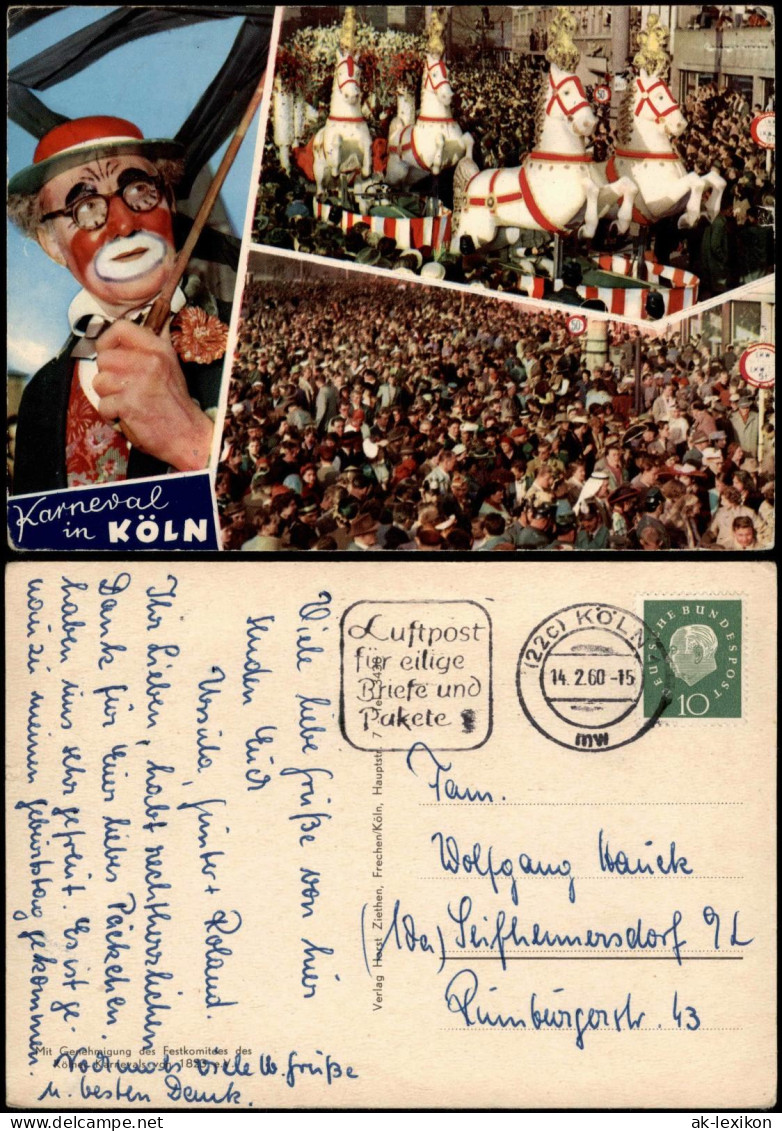 Karneval
in KÖLN
Luftpost
für eilige
Briefe und
Pakete
(22c) KÖLN
14. 2. 60 -15
mw
DEUTSCHE BUNDESPOST
10
Fam.
Wolfgang Hauck
(10a) Seifhennersdorf O/L
Rumburgerstr. 43
Verlag Horst Ziethen, Frechen/Köln, Hauptstr.
Ihr Lieben, habt recht herzlichen
Dank für Euer liebes Päckchen.
haben uns sehr gefreut. Es ist ge-
nau zu meinem Geburtstag gekommen.
Viele liebe Grüße von hier
senden Euch
Ursula, Günter + Roland.
Nochmals viele lb. Grüße
u. besten Dank.
Mit Genehmigung des Festkomitees des
Kölner Karnevals von
ak-lexikon